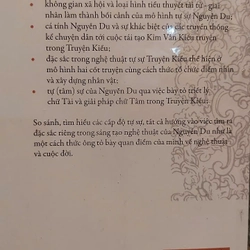 không gian xã hội và loại hình tiểu thuyết tài tử - giai
nhân làm thành bối cảnh của mô hình tự sự Nguyễn Du;
• cá tính Nguyễn Du và sự khác biệt của các truyền thống
kể chuyện dân tới cuộc tái tạo Kim Vân Kiều truyện
trong Truyện Kiều;
• đặc sắc trong nghệ thuật tự sự Truyện Kiều thể hiện ở
mô hình hai cốt truyện cùng cách thức tổ chức điểm nhìn
và mạch truyện;
• tự (tâm) sự của Nguyễn Du qua việc bày tỏ triết lý
chữ Tài và giải pháp chữ Tâm trong Truyện Kiều;
So sánh, tìm hiểu các cấp độ tự sự, tất cả hướng vào việc tìm ra
đặc sắc riêng trong sáng tạo nghệ thuật của Nguyễn Du như là
một cách thức ông tỏ bày quan điểm của mình về nghệ thuật
và cuộc đời.